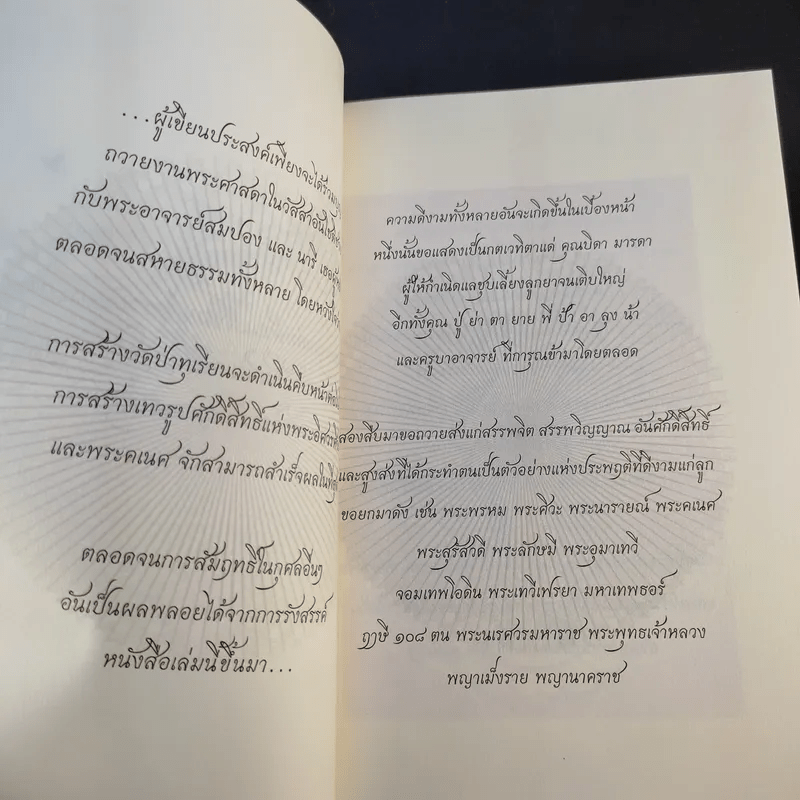 ...ผู้เขียนประสงค์เพียงจะได้ร่วม
ถวายงานพระศาสดาในวัสสาอัน
กับพระอาจารย์สมปอง และ นารี
ตลอดจนสหายธรรมทั้งหลาย โดยหวัง
การสร้างวัดป่าทุเรียนจะดำเนินคืบหน้า
การสร้างเทวรูปศักดิ์สิทธิ์แห่งพระอิศวร
และพระคเนศ จักสามารถสำเร็จผลใน
ตลอดจนการสัมฤทธิ์ในกุศลอื่นๆ
อันเป็นผลพลอยได้จากการรังสรรค์
หนังสือเล่มนี้ขึ้นมา...
ความดีงามทั้งหลายอันจะเกิดขึ้นในเบื้องหน้า
หนึ่งนั้นขอแสดงเป็นกตเวทิตาแด่ คุณบิดา มารดา
ผู้ให้กำเนิดแลชุบเลี้ยงลูกยาจนเติบใหญ่
อีกทั้งคุณ ปู่ ย่า ตา ยาย พี่ ป้า อา ลุง น้า
และครูบาอาจารย์ ที่การุณข้ามาโดยตลอด
สองสืบมาขอถวายส่งแก่สรรพจิต สรรพวิญญาณ อันศักดิ์สิทธิ์
และสูงส่งที่ได้กระทำตนเป็นตัวอย่างแห่งประพฤติที่ดีงามแก่ลูก
ขอยกมาดัง เช่น พระพรหม พระศิวะ พระนารายณ์ พระคเนศ
พระสุรัสวดี พระลักษมี พระอุมาเทวี
จอมเทพโอดิน พระเทวีเฟรยา มหาเทพธอร์
ฤาษี ๑๐๘ ตน พระนเรศวรมหาราช พระพุทธเจ้าหลวง
พญาเม็งราย พญานาคราช